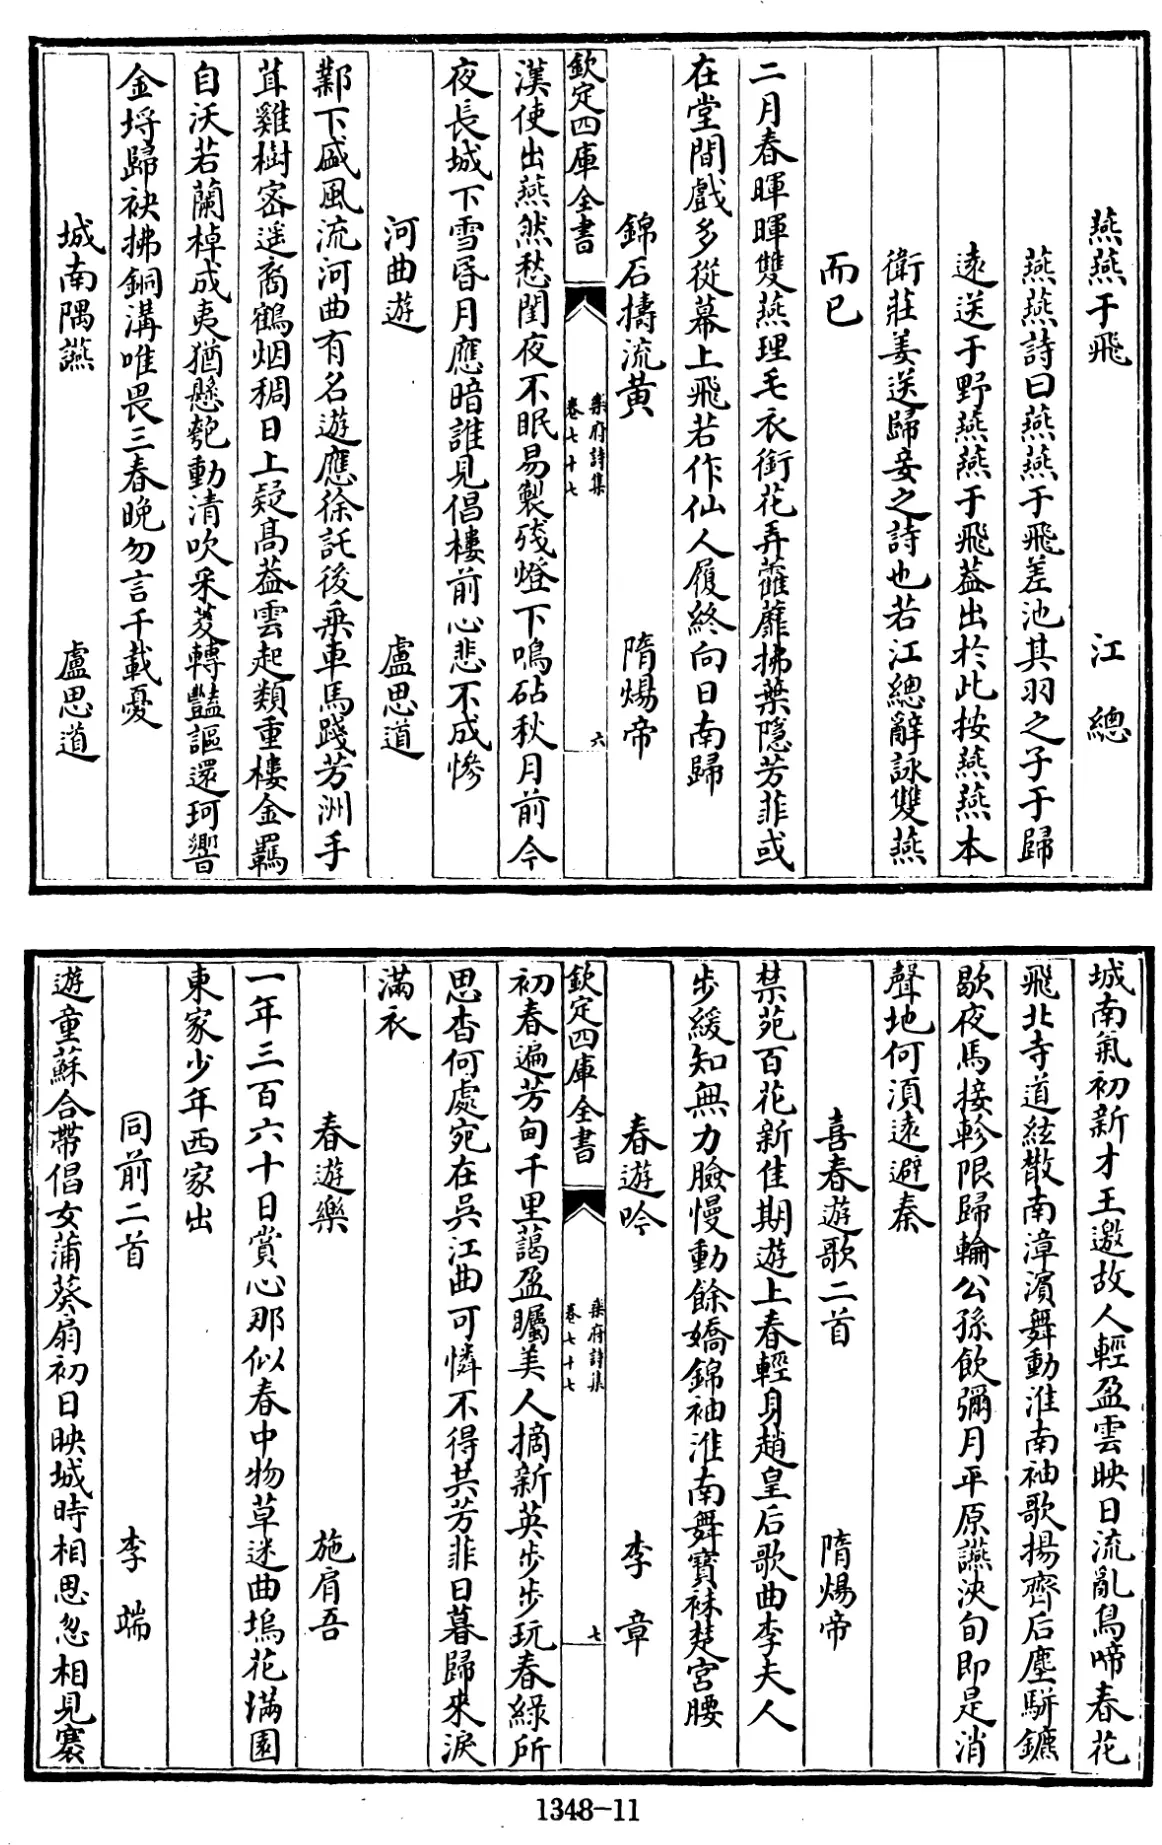 燕燕于飛 江總
燕燕詩曰燕燕于飛差池其羽之子于歸
遠送于野燕燕于飛葢出於此按燕燕本
衛莊姜送歸妾之詩也若江總辭詠雙燕
而已
二月春暉暉雙燕理毛衣銜花弄藿蘼拂葉隱芳菲或
在堂間戲多從幕上飛若作仙人履終向日南歸
錦石擣流黄 隋煬帝
欽定四庫全書 樂府詩集 卷七十七 六
漢使出燕然愁閨夜不眠易製殘燈下鳴砧秋月前今
夜長城下雪昏月應暗誰見倡樓前心悲不成慘
河曲遊 盧思道
鄴下盛風流河曲有名遊應徐託後乗車馬踐芳洲手
茸雞樹密遥裔鶴烟稠日上疑髙葢雲起類重樓金羈
自沃若蘭棹成夷猶懸匏動清吹采菱轉豔謳還珂響
金埒歸袂拂銅溝唯畏三春晩勿言千載憂
城南隅讌 盧思道
城南氣初新才王邀故人輕盈雲映日流亂鳥啼春花
飛北寺道絃散南漳濱舞動淮南袖歌揚齊后塵駢鑣
歇夜馬接軫限歸輪公孫飲彌月平原讌浹旬即是消
聲地何須遠避秦
喜春遊歌二首 隋煬帝
禁苑百花新佳期遊上春輕身趙皇后歌曲李夫人
步緩知無力臉慢動餘嬌錦袖淮南舞寳袜楚宫腰
春遊吟 李章
欽定四庫全書 樂府詩集 卷七十七 七
初春遍芳甸千里藹盈矚美人摘新英步步玩春緑所
思杳何處宛在吳江曲可憐不得共芳菲日暮歸來淚
滿衣
春遊樂 施肩吾
一年三百六十日賞心那似春中物草迷曲塢花滿園
東家少年西家出
同前二首 李端
遊童蘇合帶倡女蒲葵扇初日映城時相思忽相見褰
1348-11